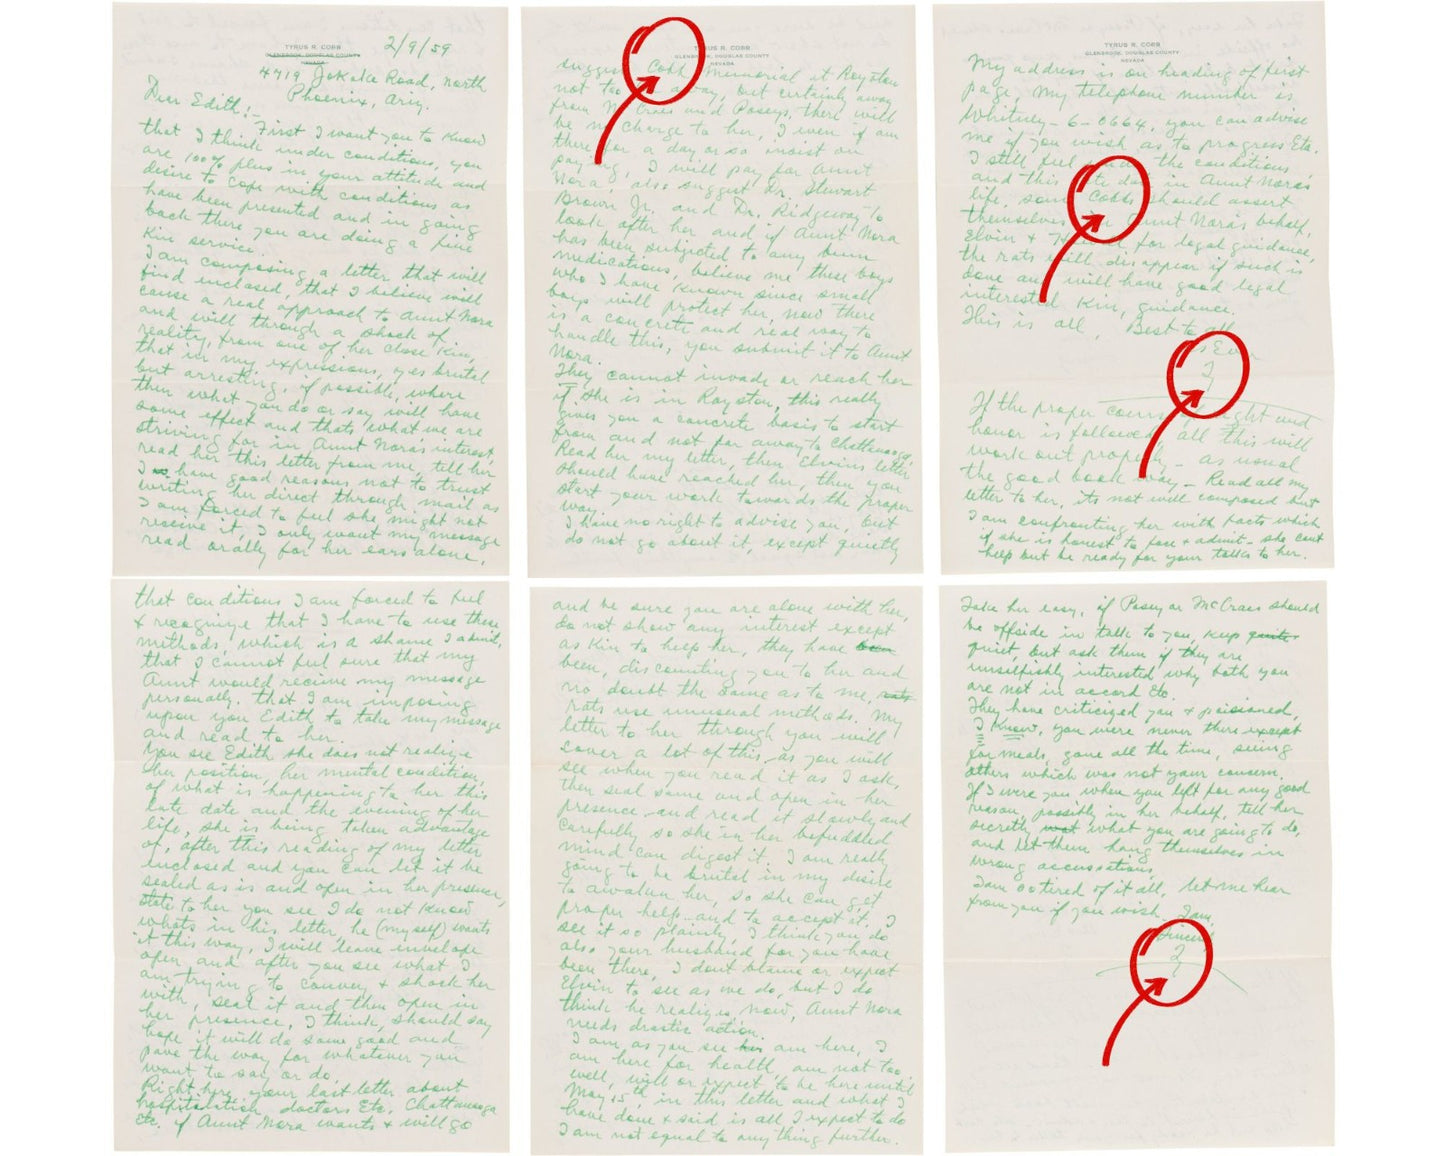 TYRUS R. COBB
GLENBROOK, DOUGLAS COUNTY
NEVADA
2/9/59
4719 Jokake Road, north
Phoenix, Ariz.
Dear Edith:-
First I want you to know
that I think under conditions, you
are 100% plus in your attitude and
desire to cope with conditions as
have been presented and in going
back there you are doing a fine
Kin service.
I am composing a letter that will
find inclosed, that I believe will
cause a real approach to Aunt Nora
and will through a shock of
reality, from one of her close Kin,
that in my expressions, yes brutal
but arresting, if possible, where
then what you do or say will have
some effect and thats what we are
striving for in Aunt Nora's interest,
read her this letter from me, tell her
I have good reasons not to trust
writing her direct through mail as
I am forced to feel she might not
receive it, I only want my message
read orally for her ears alone,
that conditions I am forced to feel
& recognize that I have to use these
methods, which is a shame I admit,
that I cannot feel sure that my
Aunt would receive my message
personally. that I am imposing
upon you Edith to take my message
and read to her.
You see Edith she does not realize
her position, her mental condition,
of what is happening to her this
late date and the evening of her
life, she is being taken advantage
of, after this reading of my letter
inclosed and you can let it be
sealed as is and open in her presence,
state to her you see I do not know
whats in his letter, he (myself) wants
it this way, I will leave envelope
open and after you see what I
am trying to convey & shock her
with, seal it and then open in
her presence, I think, should say
hope it will do some good and
pave the way for whatever you
want to say or do.
Right here, your last letter about
doctors Etc. Chattanooga
Etc. if Aunt Nora wants & will go
TYRUS R. COBB
GLENBROOK, DOUGLAS COUNTY
NEVADA
suggest Cobb Memorial at Royston
not too away, but certainly away
from McCraes and Poseys, there will
be no charge to her, I even if am
there for a day or so insist on
paying, I will pay for Aunt
Nora, also suggest Dr. Stewart
Brown Jr. and Dr. Ridgeway to
look after her and if Aunt Nora
has been subjected to any been
medications, believe me these boys
who I have known since small
boys will protect her, now there
is a concrete and real way to
handle this, you submit it to Aunt
Nora.
They cannot invade or reach her
if she is in Royston, this really
gives you a concrete basis to start
from and not far away to Chattanooga,
Read her my letter, then Elvins letter
should have reached her, then you
start your work towards the proper
way.
I have no right to advise you, but
do not go about it, except quietly
and be sure you are alone with her,
do not show any interest except
as Kin to help her, they have
been, discounting you to her and
no doubt the same as to me,
rats use unusual methods. My
letter to her through you will
cover a lot of this, as you will
see when you read it as I ask,
then seal same and open in her
presence and read it slowly and
carefully so she in her befuddled
mind can digest it. I am really
going to be brutal in my desire
to awaken her, so she can get
proper help and to accept it, I
see it so plainly, I think you do
also your husband for you have
been there, I dont blame or expect
Elvin to see as we do, but I do
think he realizes now, Aunt Nora
needs drastic action.
I am as you see am here, I
am here for health, am not too
well, will or expect to be here until
May 15th, in this letter and what I
have done & said is all I expect to do
I am not equal to anything further.
TYRUS R. COBB
GLENBROOK, DOUGLAS COUNTY
NEVADA
My address is on heading of first
page my telephone number is
Whitney-6-0664, you can advise
me if you wish as to progress Etc.
I still feel the conditions
and this late date in Aunt Nora's
life, some Cobbs should assert
themselves in Aunt Nora's behalf,
Elvin & for legal guidance,
the rats will disappear if such is
done and will have good legal
interested Kin, guidance.
This is all, Best to all
as Ever
If the proper course, thought and
honor is followed, all this will
work out properly - as usual
the good book way, - Read all my
letter to her, its not well composed but
I am confronting her with facts which
if she is honest to face & admit - she cant
help but be ready for your talks to her.
Take her easy, if Posey or McCraes should
be offside in talk to you, keep
quiet, but ask them if they are
unselfishly interested why both you
are not in accord Etc.
They have criticized you & poisoned,
I Know, you were never there except
for meals, gone all the time, seeing
others which was not your concern.
If I were you when you left for any good
reason, possibly in her behalf, tell her
secretly what you are going to do,
and let them hang themselves in
wrong accusations.
I am so tired of it all, let me hear
from you if you wish. I am,
Sincerely